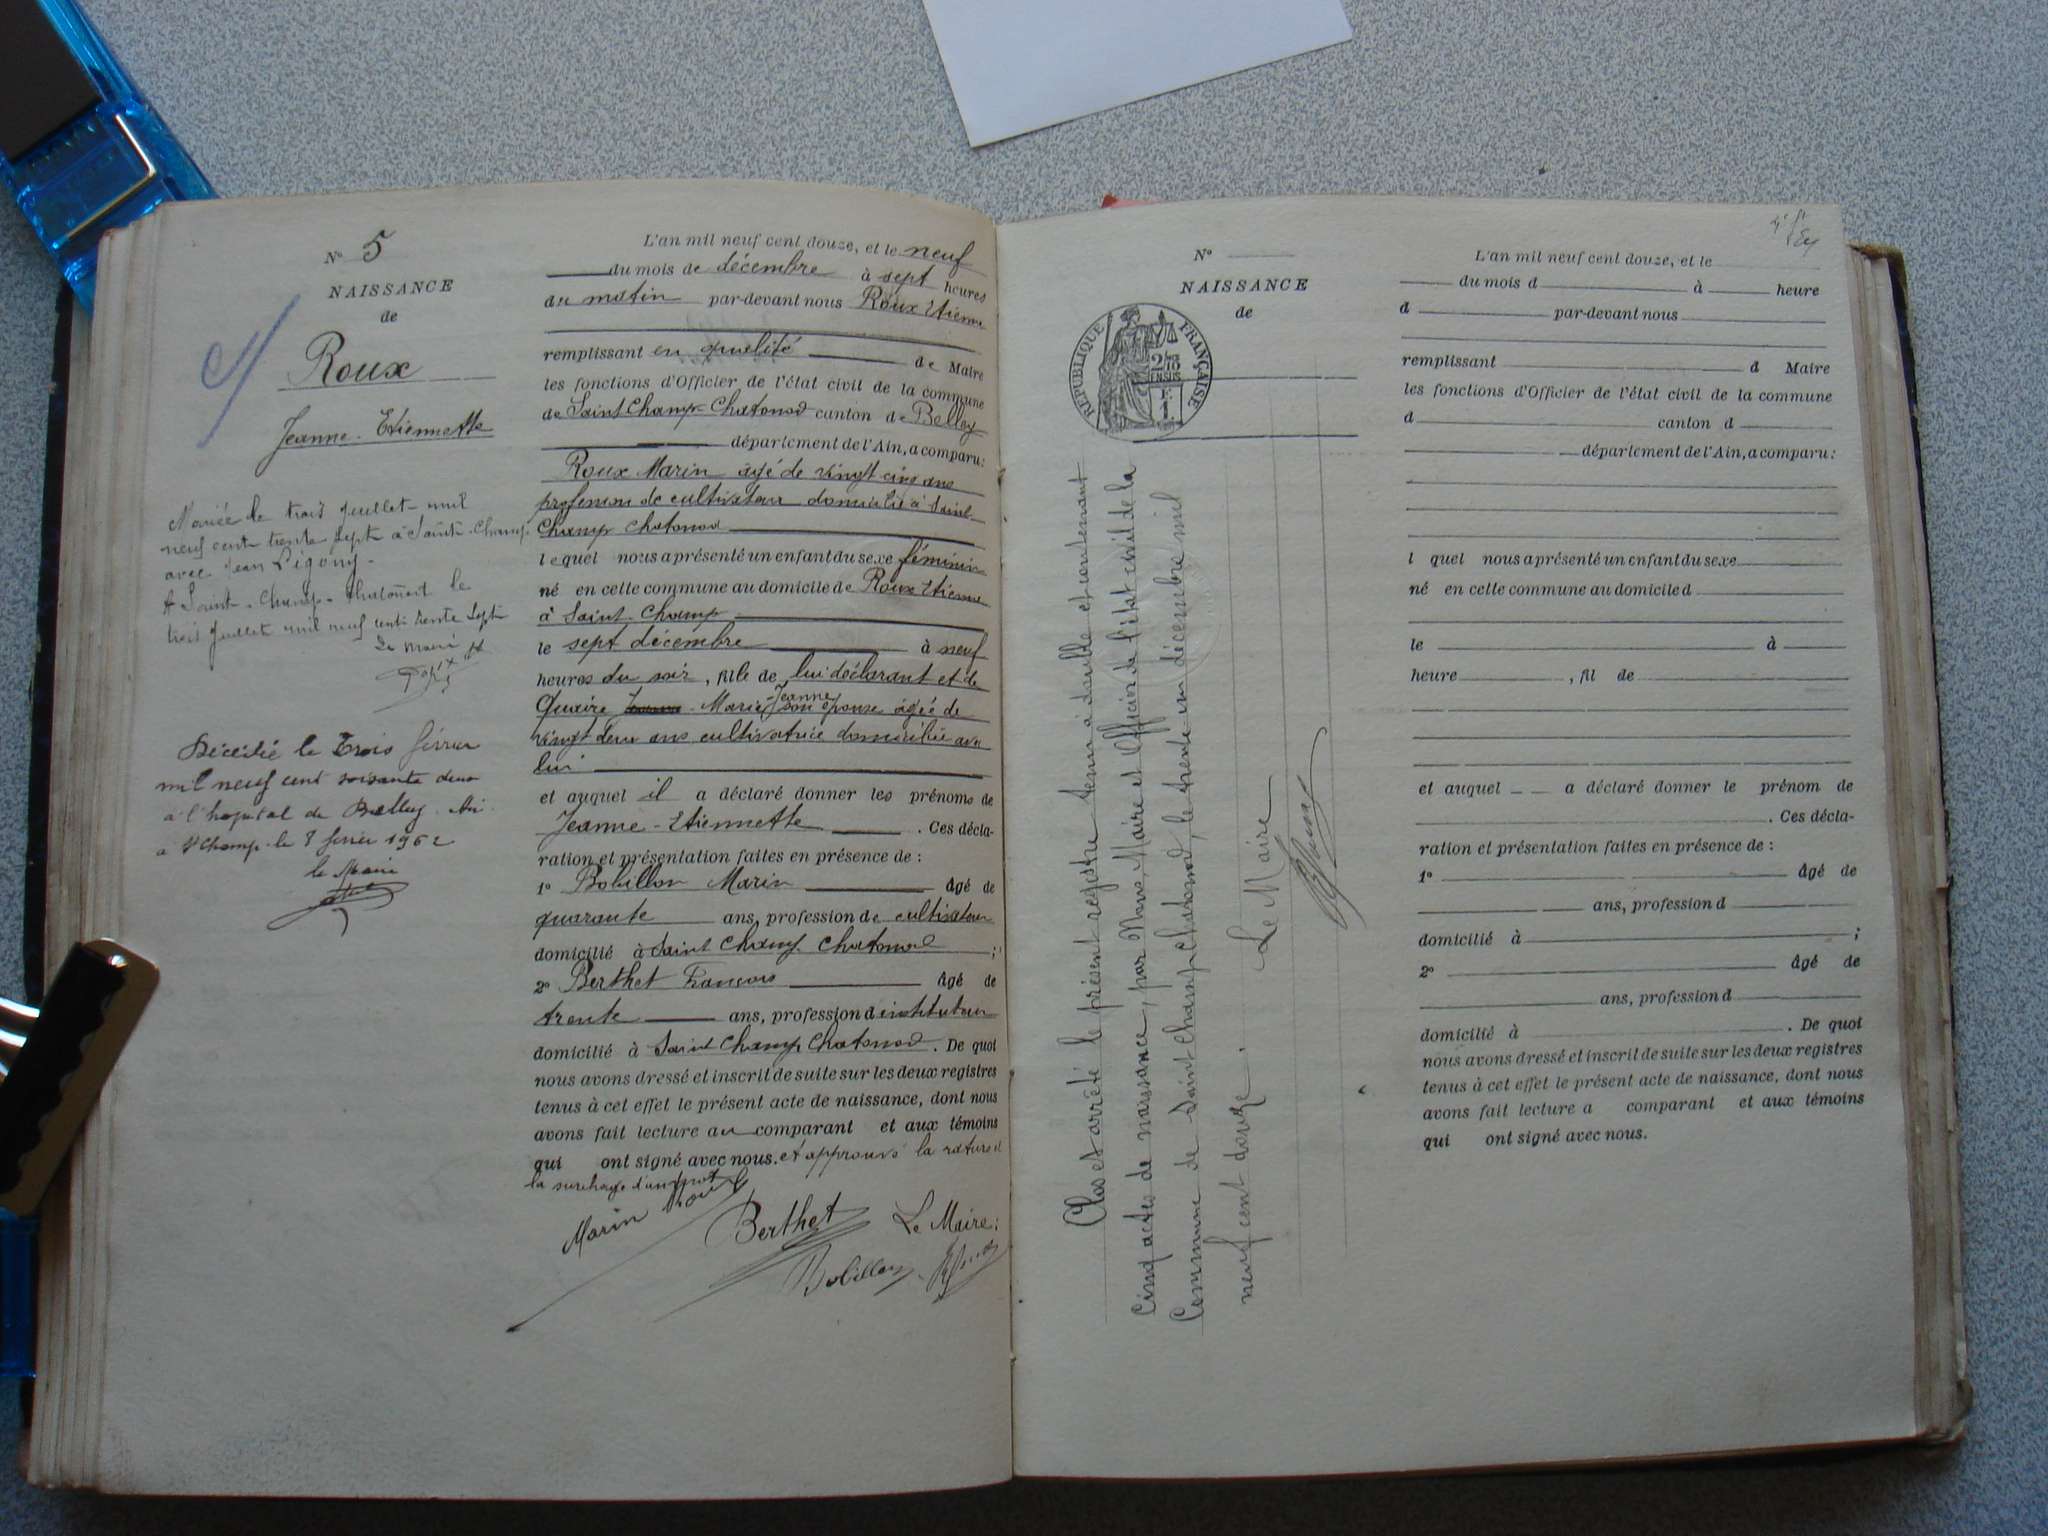 N° 5
NAISSANCE
de
Roux
Jeanne-Etiennette
Mariée le trois juillet mil
neuf cent trente sept à Saint-Champ
avec Jean Pigony.
A Saint-Champ-Chatonod le
trois juillet mil neuf cent trente sept
Le maire
Décédée le Trois février
mil neuf cent soixante deux
à l'hopital de Belley. Ain
a St Champ le 8 février 1962
le Maire
L'an mil neuf cent douze, et le neuf
du mois de décembre à sept heures
du matin par-devant nous Roux Etienne
remplissant en qualité de Maire
les fonctions d'Officier de l'état civil de la commune
de Saint Champ-Chatonod canton de Belley
département de l'Ain, a comparu:
Roux Marin âgé de vingt cinq ans
profession de cultivateur domicilié à Saint
Champ Chatonod
lequel nous a présenté un enfant du sexe féminin
né en cette commune au domicile de Roux Etienne
à Saint-Champ
le sept décembre à neuf
heures du soir, fille de lui déclarant et de
Quaire Marie-Jeanne son épouse âgée de
vingt deux ans cultivatrice domiciliée avec
lui
et auquel il a déclaré donner les prénoms de
Jeanne-Etiennette. Ces décla-
ration et présentation faites en présence de :
1° Bobillon Marin âgé de
quarante ans, profession de cultivateur
domicilié à Saint Champ Chatonod ;
2° Berthet François âgé de
trente ans, profession d'instituteur
domicilié à Saint Champ Chatonod. De quoi
nous avons dressé et inscrit de suite sur les deux registres
tenus à cet effet le présent acte de naissance, dont nous
avons fait lecture au comparant et aux témoins
qui ont signé avec nous. et approuvé la rature et
la surcharge d'un mot
Marin Roux
Berthet
Le Maire :
Bobillon
N°
NAISSANCE
de
RÉPUBLIQUE FRANÇAISE
2/10 EN SUS
1 F.
Clos et arrêté le présent registre tenu à double et contenant
cinq actes de naissance, par Nous, Maire et Officier de l'état civil de la
Commune de Saint Champ Chatonod, le trente un décembre mil
neuf cent douze.
Le Maire
L'an mil neuf cent douze, et le
du mois d à heure
d par-devant nous
remplissant d Maire
les fonctions d'Officier de l'état civil de la commune
d canton d
département de l'Ain, a comparu:
l quel nous a présenté un enfant du sexe
né en cette commune au domicile d
le à
heure , fil de
et auquel a déclaré donner le prénom de
. Ces décla-
ration et présentation faites en présence de :
1° âgé de
ans, profession d
domicilié à ;
2° âgé de
ans, profession d
domicilié à . De quoi
nous avons dressé et inscrit de suite sur les deux registres
tenus à cet effet le présent acte de naissance, dont nous
avons fait lecture a comparant et aux témoins
qui ont signé avec nous.